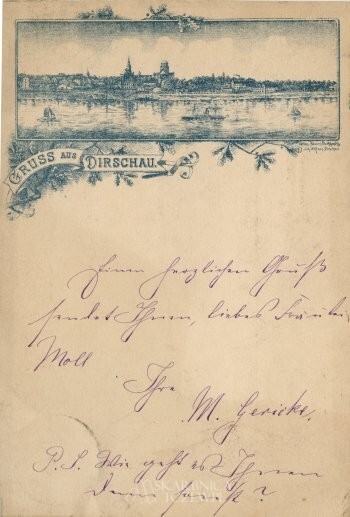 GRUSS AUS DIRSCHAU.
Einen herzlichen Gruß
sendet Ihnen, liebes Fräulein
Moll
Ihre
M. Gericke.
P. S. Wie geht es Ihnen
denn sonst?